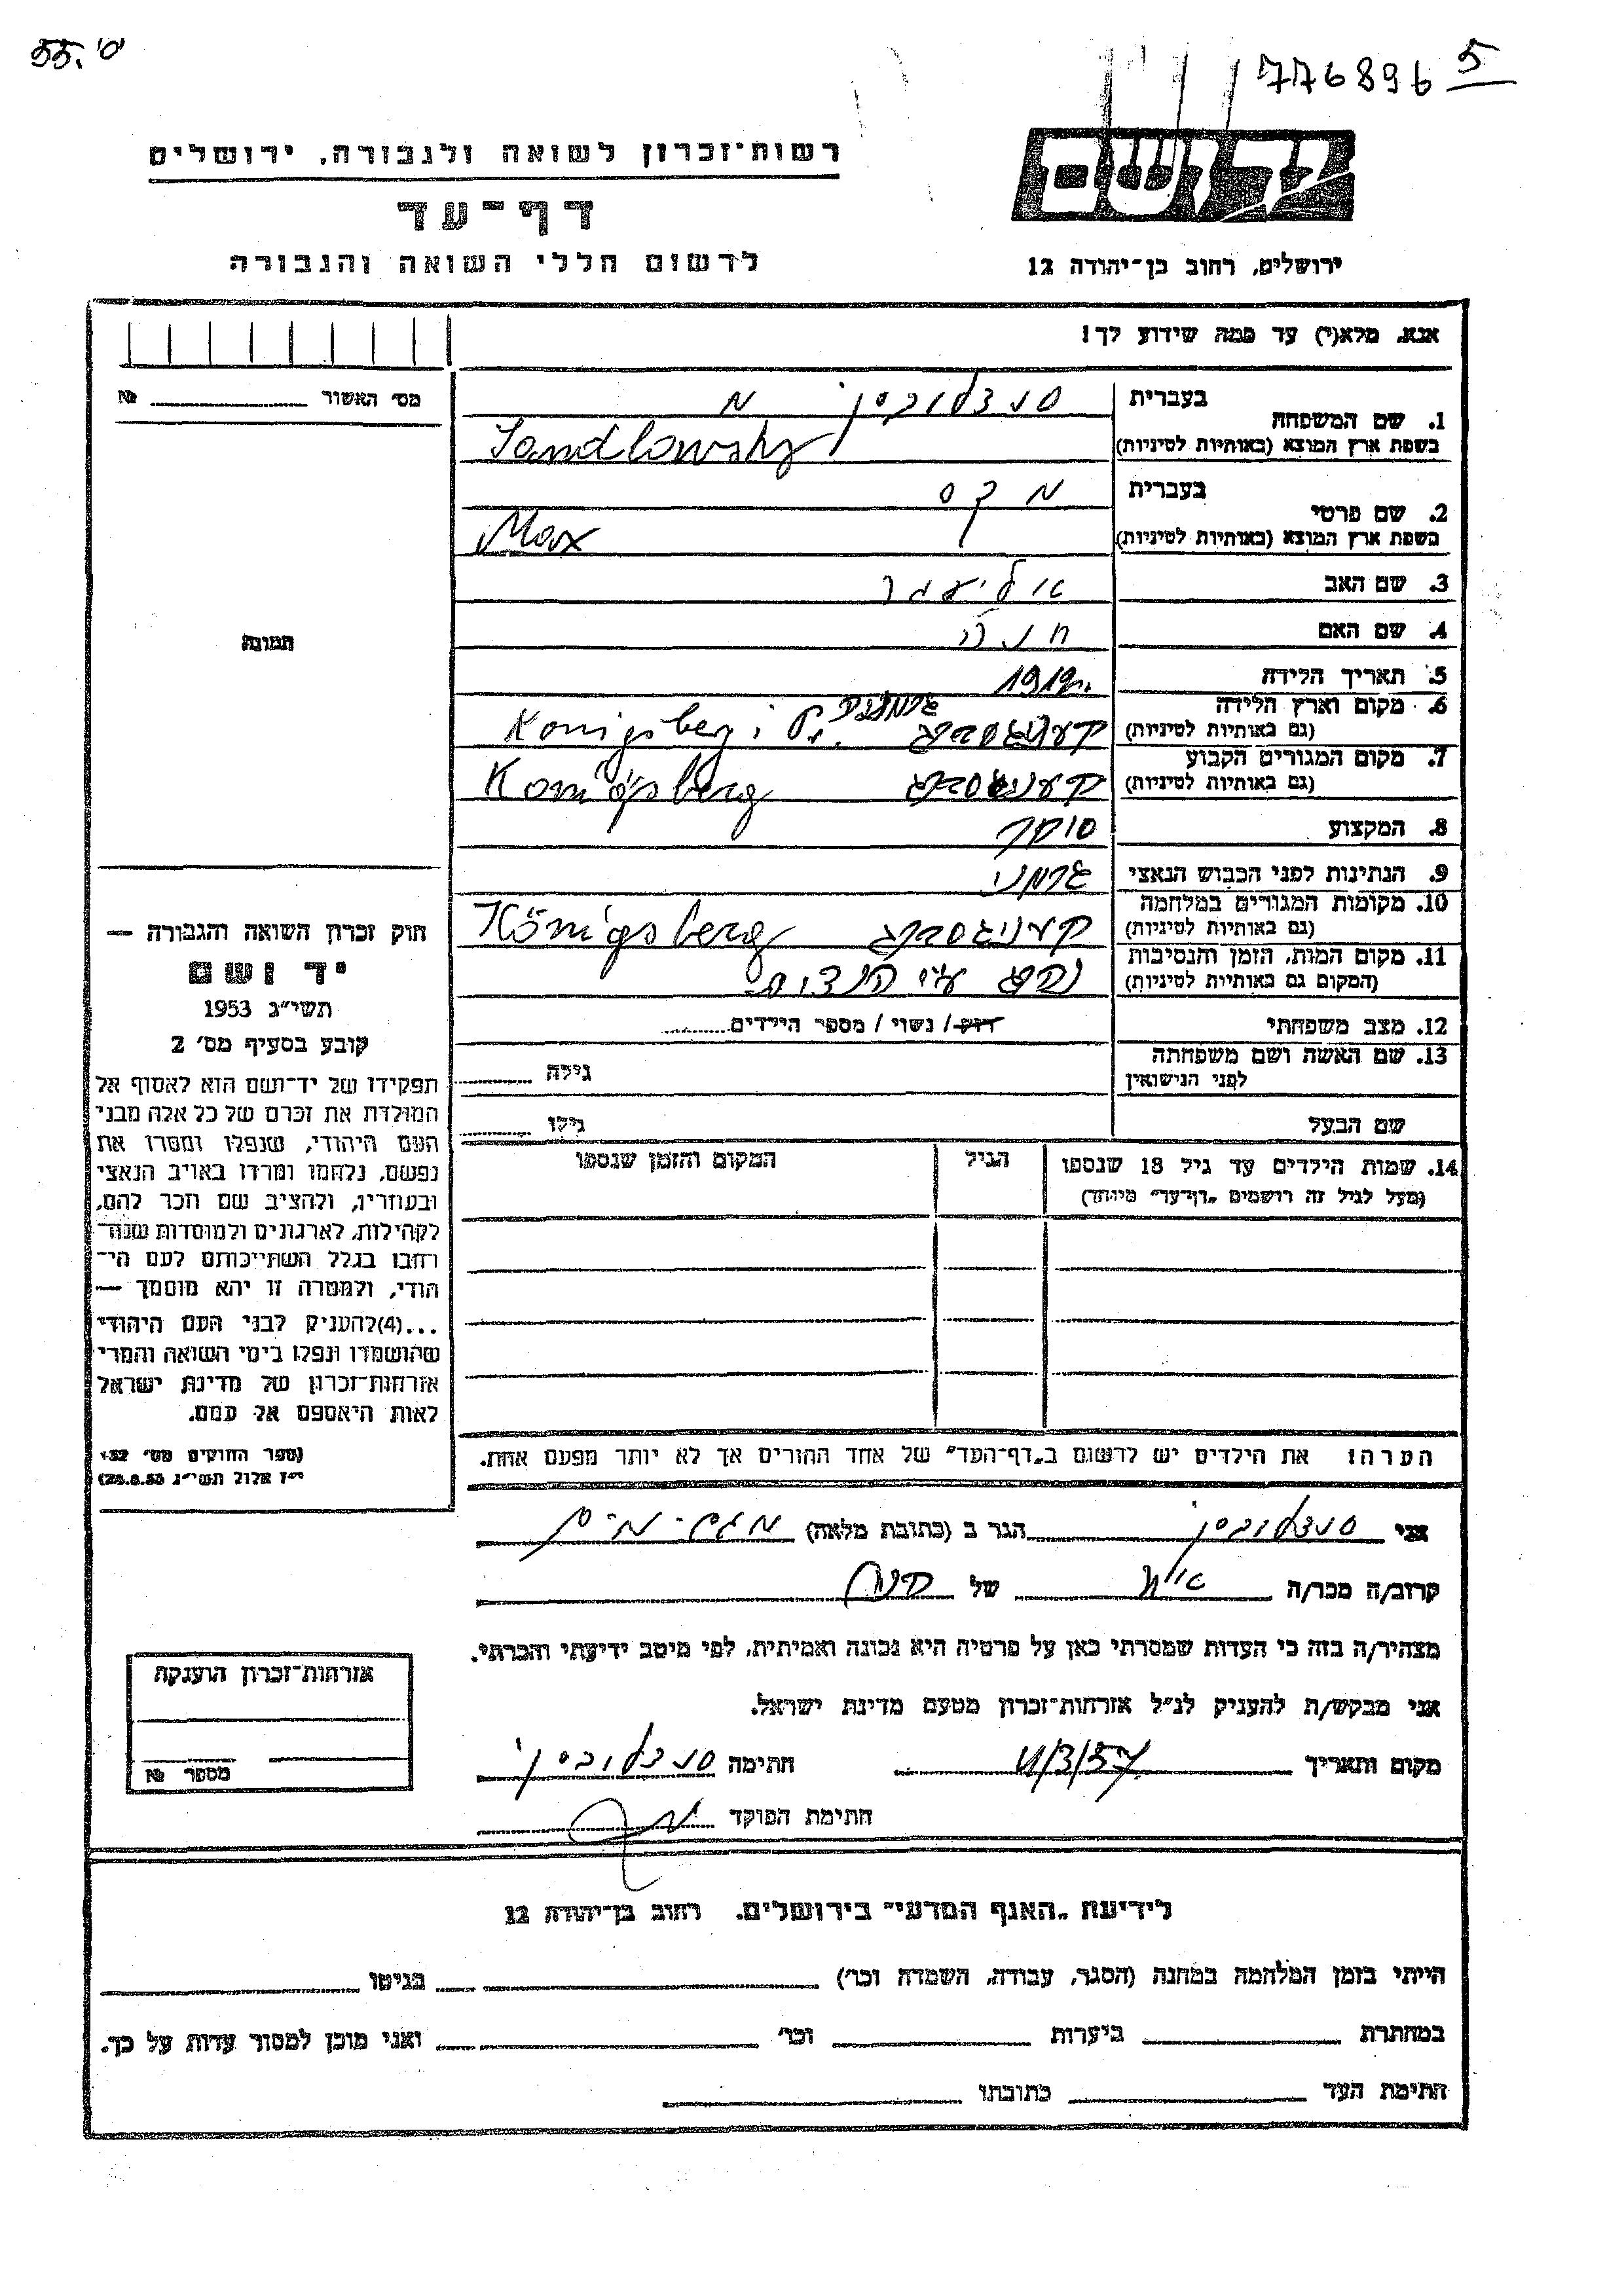 ס' .55
776896 5
רשות־זכרון לשואה ולגבורה, ירושלים
דף־עד
לרשום חללי השואה והגבורה
יד ושם
ירושלים, רחוב בן־יהודה 12
אנא, מלא(י) עד כמה שידוע לך!
מס' האשור №
1. שם המשפחה
בעברית סנדלובסקי מ
בשפת ארץ המוצא (באותיות לטיניות) Sandlowsky
2. שם פרטי
בעברית מקס
בשפת ארץ המוצא (באותיות לטיניות) Max
3. שם האב אליעזר
4. שם האם חנה
5. תאריך הלידה 1912
6. מקום וארץ הלידה
(גם באותיות לטיניות) קעניגסברג גרמניה Konigsberg i Pr.
7. מקום המגורים הקבוע
(גם באותיות לטיניות) קעניגסברג Königsberg
8. המקצוע סוחר
9. הנתינות לפני הכבוש הנאצי גרמני
10. מקומות המגורים במלחמה
(גם באותיות לטיניות) קעניגסברג Königsberg
11. מקום המות, הזמן והנסיבות
(המקום גם באותיות לטיניות) נהרג ע"י הנצים
12. מצב משפחתי רווק / נשוי / מספר הילדים
13. שם האשה ושם משפחתה
לפני הנישואין גילה
שם הבעל גילו
14. שמות הילדים עד גיל 18 שנספו
(מעל לגיל זה רושמים „דף־עד" מיוחד)
הגיל
המקום והזמן שנספו
הערה! את הילדים יש לרשום ב„דף־העד" של אחד ההורים אך לא יותר מפעם אחת.
תמונה
חוק זכרון השואה והגבורה —
יד ושם
תשי"ג 1953
קובע בסעיף מס' 2
תפקידו של יד־ושם הוא לאסוף אל
המולדת את זכרם של כל אלה מבני
העם היהודי, שנפלו ומסרו את
נפשם, נלחמו ומרדו באויב הנאצי
ובעוזריו, ולהציב שם וזכר להם,
לקהילות, לארגונים ולמוסדות שנח־
רבו בגלל השתייכותם לעם הי־
הודי, ולמטרה זו יהא מוסמך —
...(4)להעניק לבני העם היהודי
שהושמדו ונפלו בימי השואה והמרי
אזרחות־זכרון של מדינת ישראל
לאות היאספם אל עמם.
(ספר החוקים מס' 132
י"ז אלול תשי"ג 28.8.53)
אני סנדלובסקי הגר ב (כתובת מלאה)
קרוב/ה מכר/ה של
מצהיר/ה בזה כי העדות שמסרתי כאן על פרטיה היא נכונה ואמיתית, לפי מיטב ידיעתי והכרתי.
אני מבקש/ת להעניק לנ"ל אזרחות־זכרון מטעם מדינת ישראל.
מקום ותאריך חתימה סנדלובסקי
חתימת הפוקד
אזרחות־זכרון הוענקה
מספר №
לידיעת „האגף המדעי" בירושלים, רחוב בן־יהודה 12
הייתי בזמן המלחמה במחנה (הסגר, עבודה, השמדה וכו') בגיטו
במחתרת ביערות וכו' ואני מוכן למסור עדות על כך.
חתימת העד כתובתו